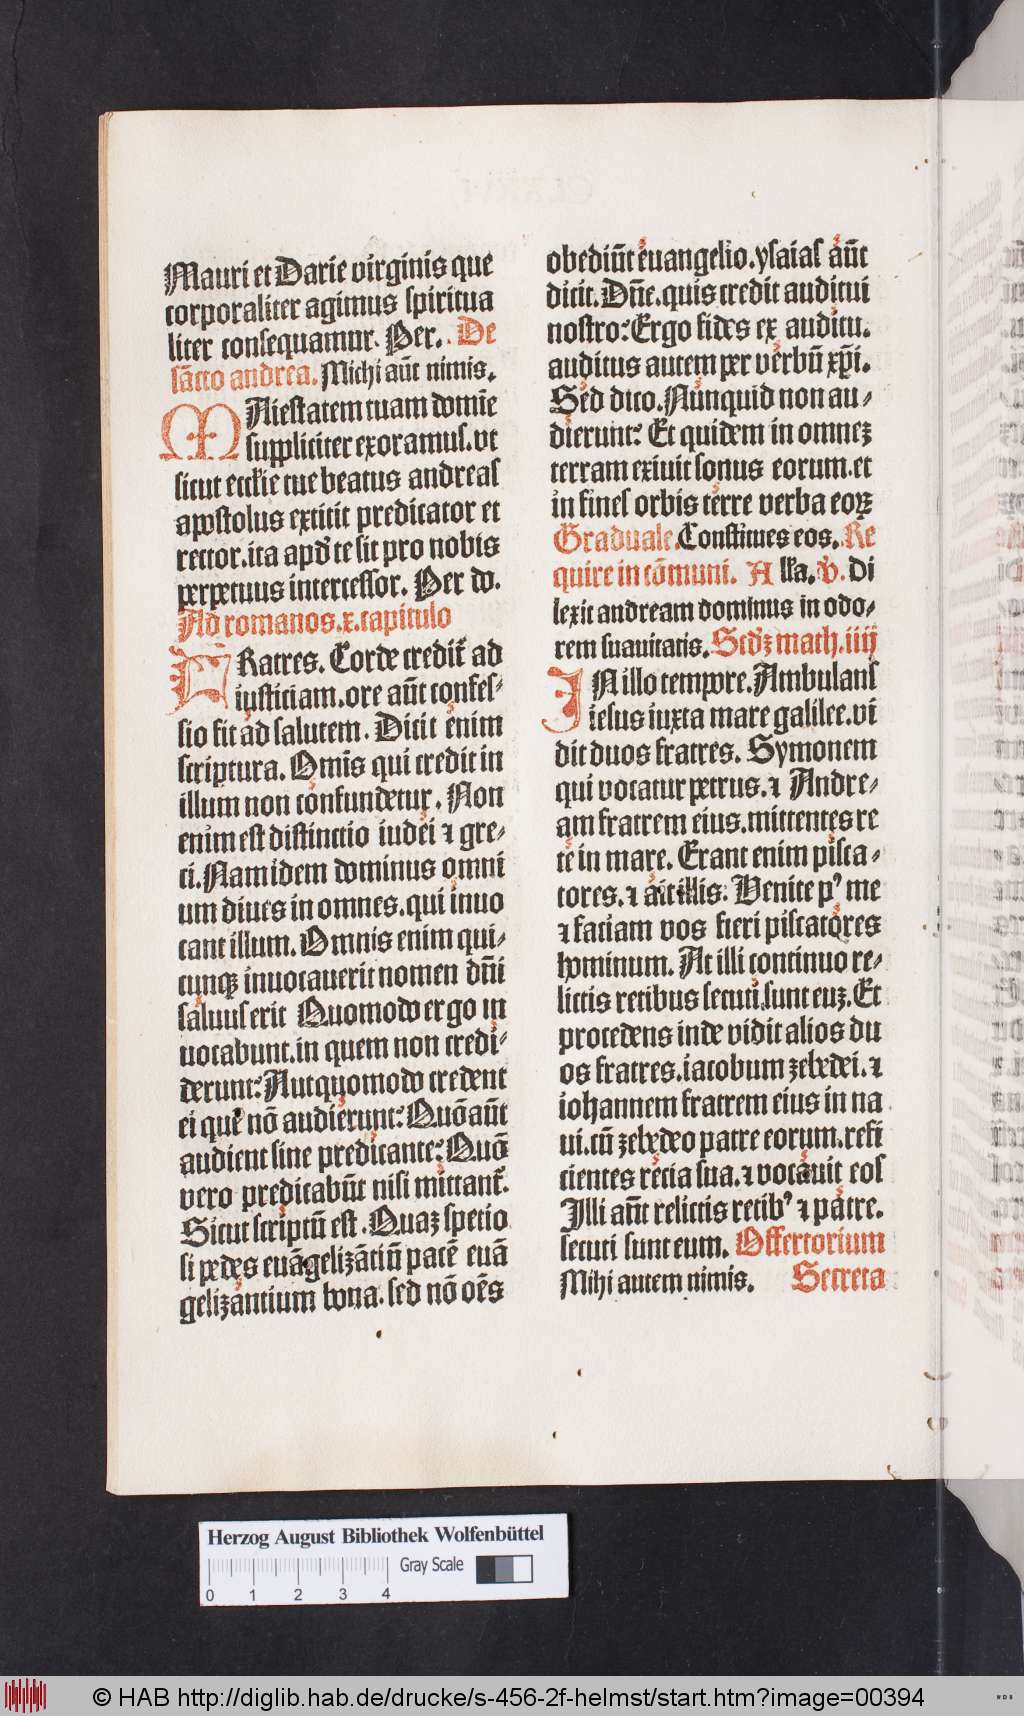 Mauri et Darie virginis que
corporaliter agimus spiritua
liter consequamur. Per. De
sācto andrea. Michi aūt nimis.
MAiestatem tuam domīe
suppliciter exoramus. vt
sicut ecclīe tue beatus andreas
apostolus extitit predicator et
rector. ita apd̄ te sit pro nobis
perpetuus intercessor. Per do.
Ad romanos. x. capitulo
FRatres. Corde credit̄ ad
iusticiam. ore aūt confes⸗
sio fit ad salutem. Dicit enim
scriptura. Omīs qui credit in
illum non confundetur. Non
enim est distinctio iudei ⁊ gre⸗
ci. Nam idem dominus omni
um diues in omnes. qui inuo
cant illum. Omnis enim qui⸗
cunqꝫ inuocauerit nomen dn̄i
saluus erit Quomodo ergo in
uocabunt. in quem non credi⸗
derunt: Aut quomodo credent
ei quē nō audierunt: Quō aūt
audient sine predicante: Quō
vero predicabūt nisi mittant̄.
Sicut scriptū est. Quaꝫ specio
si pedes euāgelizātiū pacē euā
gelizantium bona. sed nō oēs
obediūt euangelio. ysaias aūt
dicit. Dn̄e. quis credit auditui
nostro: Ergo fides ex auditu.
auditus autem per verbū xp̄i.
Sed dico. Nunquid non au⸗
dierunt: Et quidem in omneꝫ
terram exiuit sonus eorum. et
in fines orbis terre verba eoꝝ
Graduale. Constitues eos. Re
quire in cōmuni. A lla. V̄. Di
lexit andream dominus in odo⸗
rem suauitatis. Scdꝫ math. iiij
IN illo tempore. Ambulans
iesus iuxta mare galilee. vi
dit duos fratres. Symonem
qui vocatur petrus. ⁊ Andre⸗
am fratrem eius. mittentes re
te in mare. Erant enim pisca⸗
tores. ⁊ ait illis: Venite pꝰ me
⁊ faciam vos fieri piscatores
hominum. At illi continuo re⸗
lictis retibus secuti sunt euꝫ. Et
procedens inde vidit alios du
os fratres. iacobum zebedei. ⁊
iohannem fratrem eius in na
ui. cū zebedeo patre eorum. refi
cientes recia sua. ⁊ vocauit eos
Illi aūt relictis retibꝰ ⁊ patre.
secuti sunt eum. Offertorium
Mihi autem nimis. Secreta
Herzog August Bibliothek Wolfenbüttel
Gray Scale
0 1 2 3 4
© HAB http://diglib.hab.de/drucke/s-456-2f-helmst/start.htm?image=00394